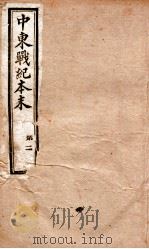 中東戰紀本末
第二